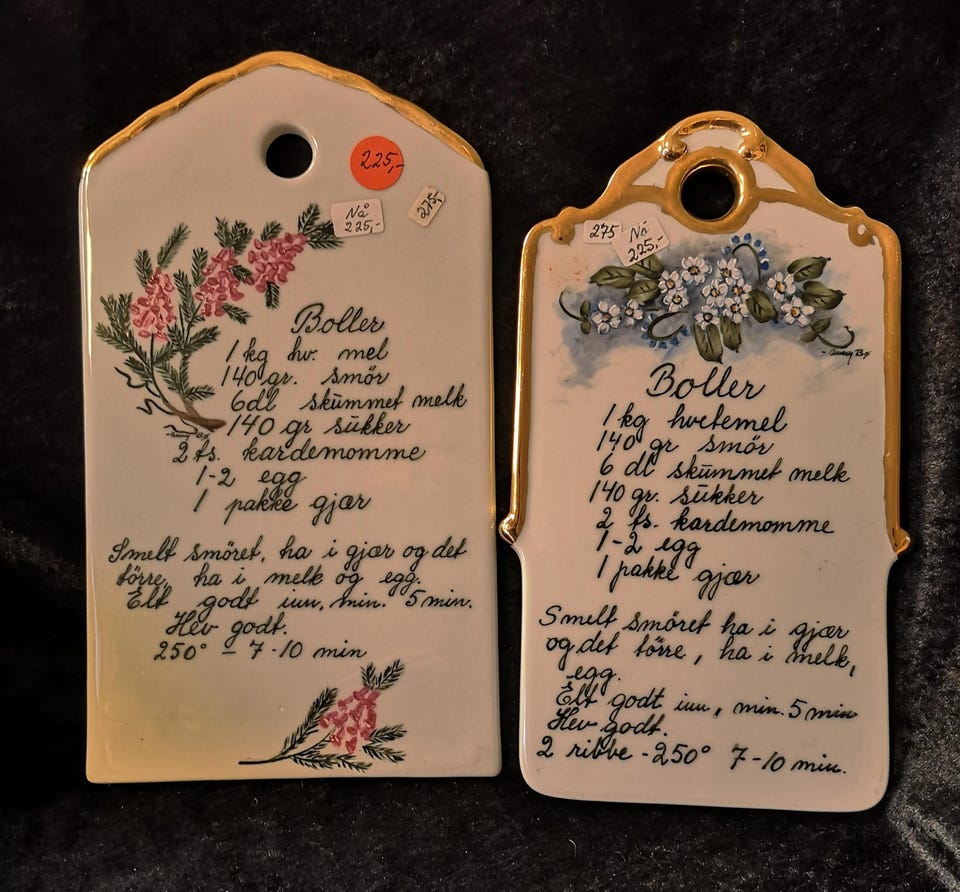 225,-
275,-
Nå
225,-
Boller
1 kg hv. mel
140 gr. smör
6dl skummet melk
140 gr sukker
2 ts. kardemomme
1-2 egg
1 pakke gjær
Smelt smöret, ha i gjær og det
törre, ha i melk og egg.
Elt godt inn, min. 5 min.
Hev godt.
250° - 7-10 min
275
Nå
225,-
Boller
1 kg hvetemel
140 gr smör
6 dl skummet melk
140 gr. sukker
2 ts. kardemomme
1-2 egg
1 pakke gjær
Smelt smöret ha i gjær
og det törre, ha i melk,
egg.
Elt godt inn, min. 5 min
Hev godt.
2 ribbe - 250° 7-10 min.